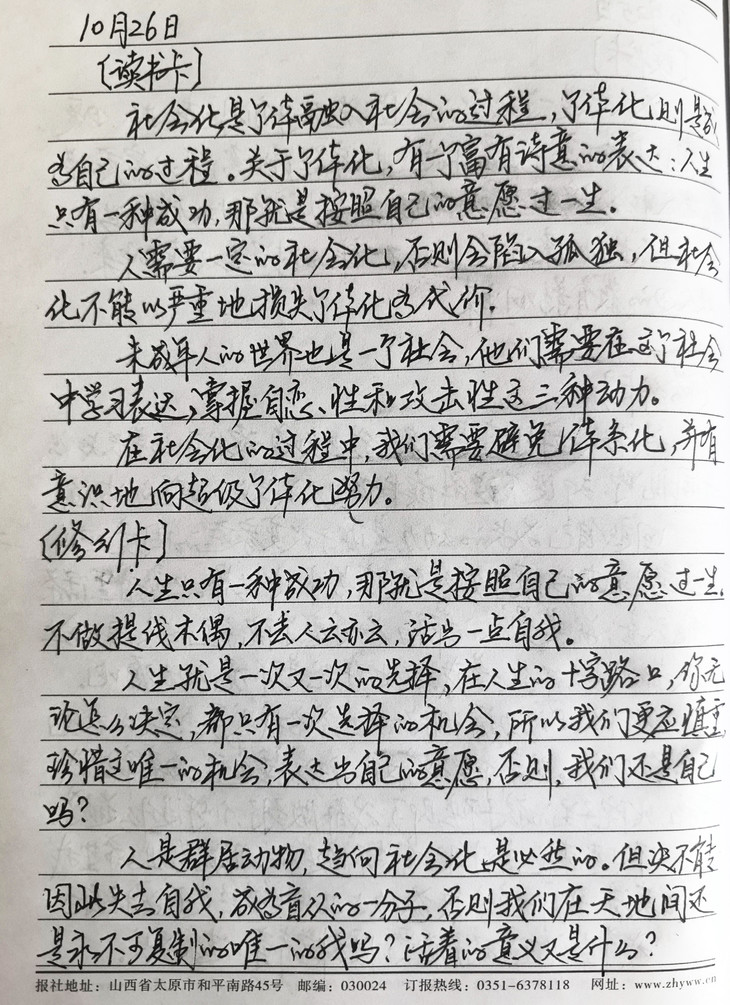 10月26日
〔读书卡〕
社会化是个体融入社会的过程，个体化则是成
为自己的过程。关于个体化，有个富有诗意的表达：人生
只有一种成功，那就是按照自己的意愿过一生。
人需要一定的社会化，否则会陷入孤独，但社会
化不能以严重地损失个体化为代价。
未成年人的世界也是一个社会，他们需要在这个社会
中学习表达，掌握自恋、性和攻击性这三种动力。
在社会化的过程中，我们需要避免体系化，并有
意识地向超级个体化努力。
〔修行卡〕
人生只有一种成功，那就是按照自己的意愿过一生，
不做提线木偶，不去人云亦云，活出一点自我。
人生就是一次又一次的选择，在人生的十字路口，你无
论怎么决定，都只有一次选择的机会，所以我们更应慎重，
珍惜这唯一的机会，表达出自己的意愿，否则，我们还是自己
吗？
人是群居动物，趋向社会化是必然的。但决不能
因此失去自我，成为盲从的一分子，否则我们在天地间还
是永不可复制的唯一的我吗？活着的意义又是什么？
报社地址：山西省太原市和平南路45号 邮编：030024 订报热线：0351-6378118 网址：www.zhyww.cn